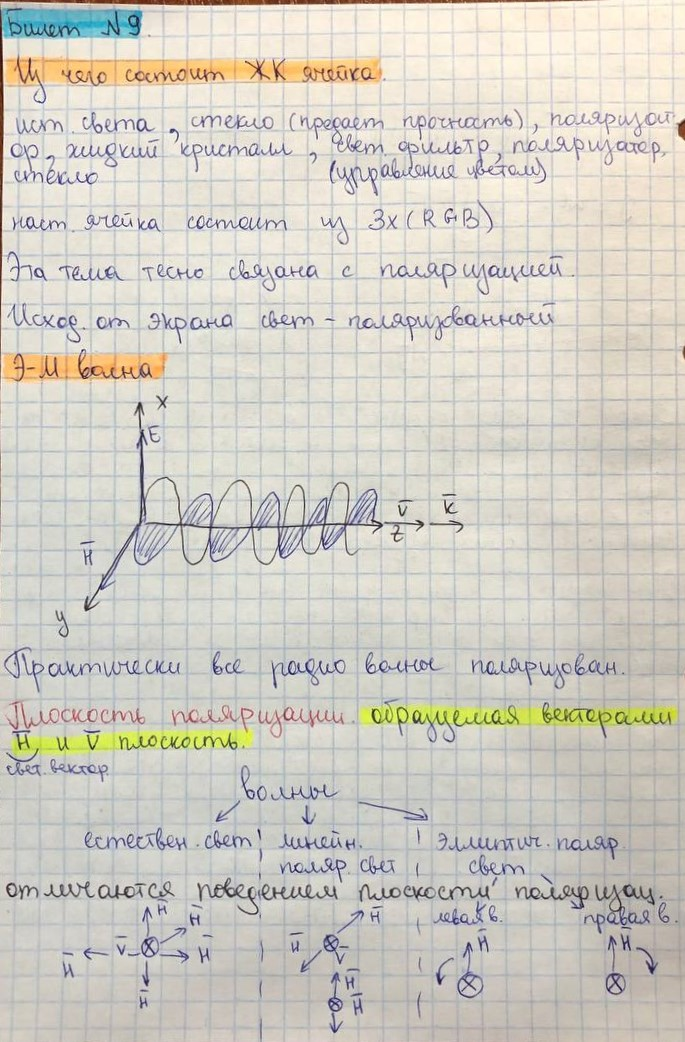 Билет №9
Из чего состоит ЖК ячейка.
ист. света, стекло (предает прочность), поляризат-
ор, жидкий кристалл, свет. фильтр, поляризатор,
стекло (управление цветом)
наст. ячейка состоит из 3х (RGB)
Эта тема тесно связана с поляризацией.
Исход. от экрана свет - поляризованный
Э-М волна
x
E
V̄ k̄
z
H̄
y
Практически все радио волны поляризован.
Плоскость поляризации. образуемая векторами
H̄ и V̄ плоскость.
свет. вектор
волны
естествен. свет линейн. эллиптич. поляр.
поляр. свет свет
отличаются поведением плоскости поляризац.
H̄ H̄ H̄ левая в. правая в.
V̄ H̄ H̄ V̄ H̄ H̄
H̄ H̄
H̄ H̄